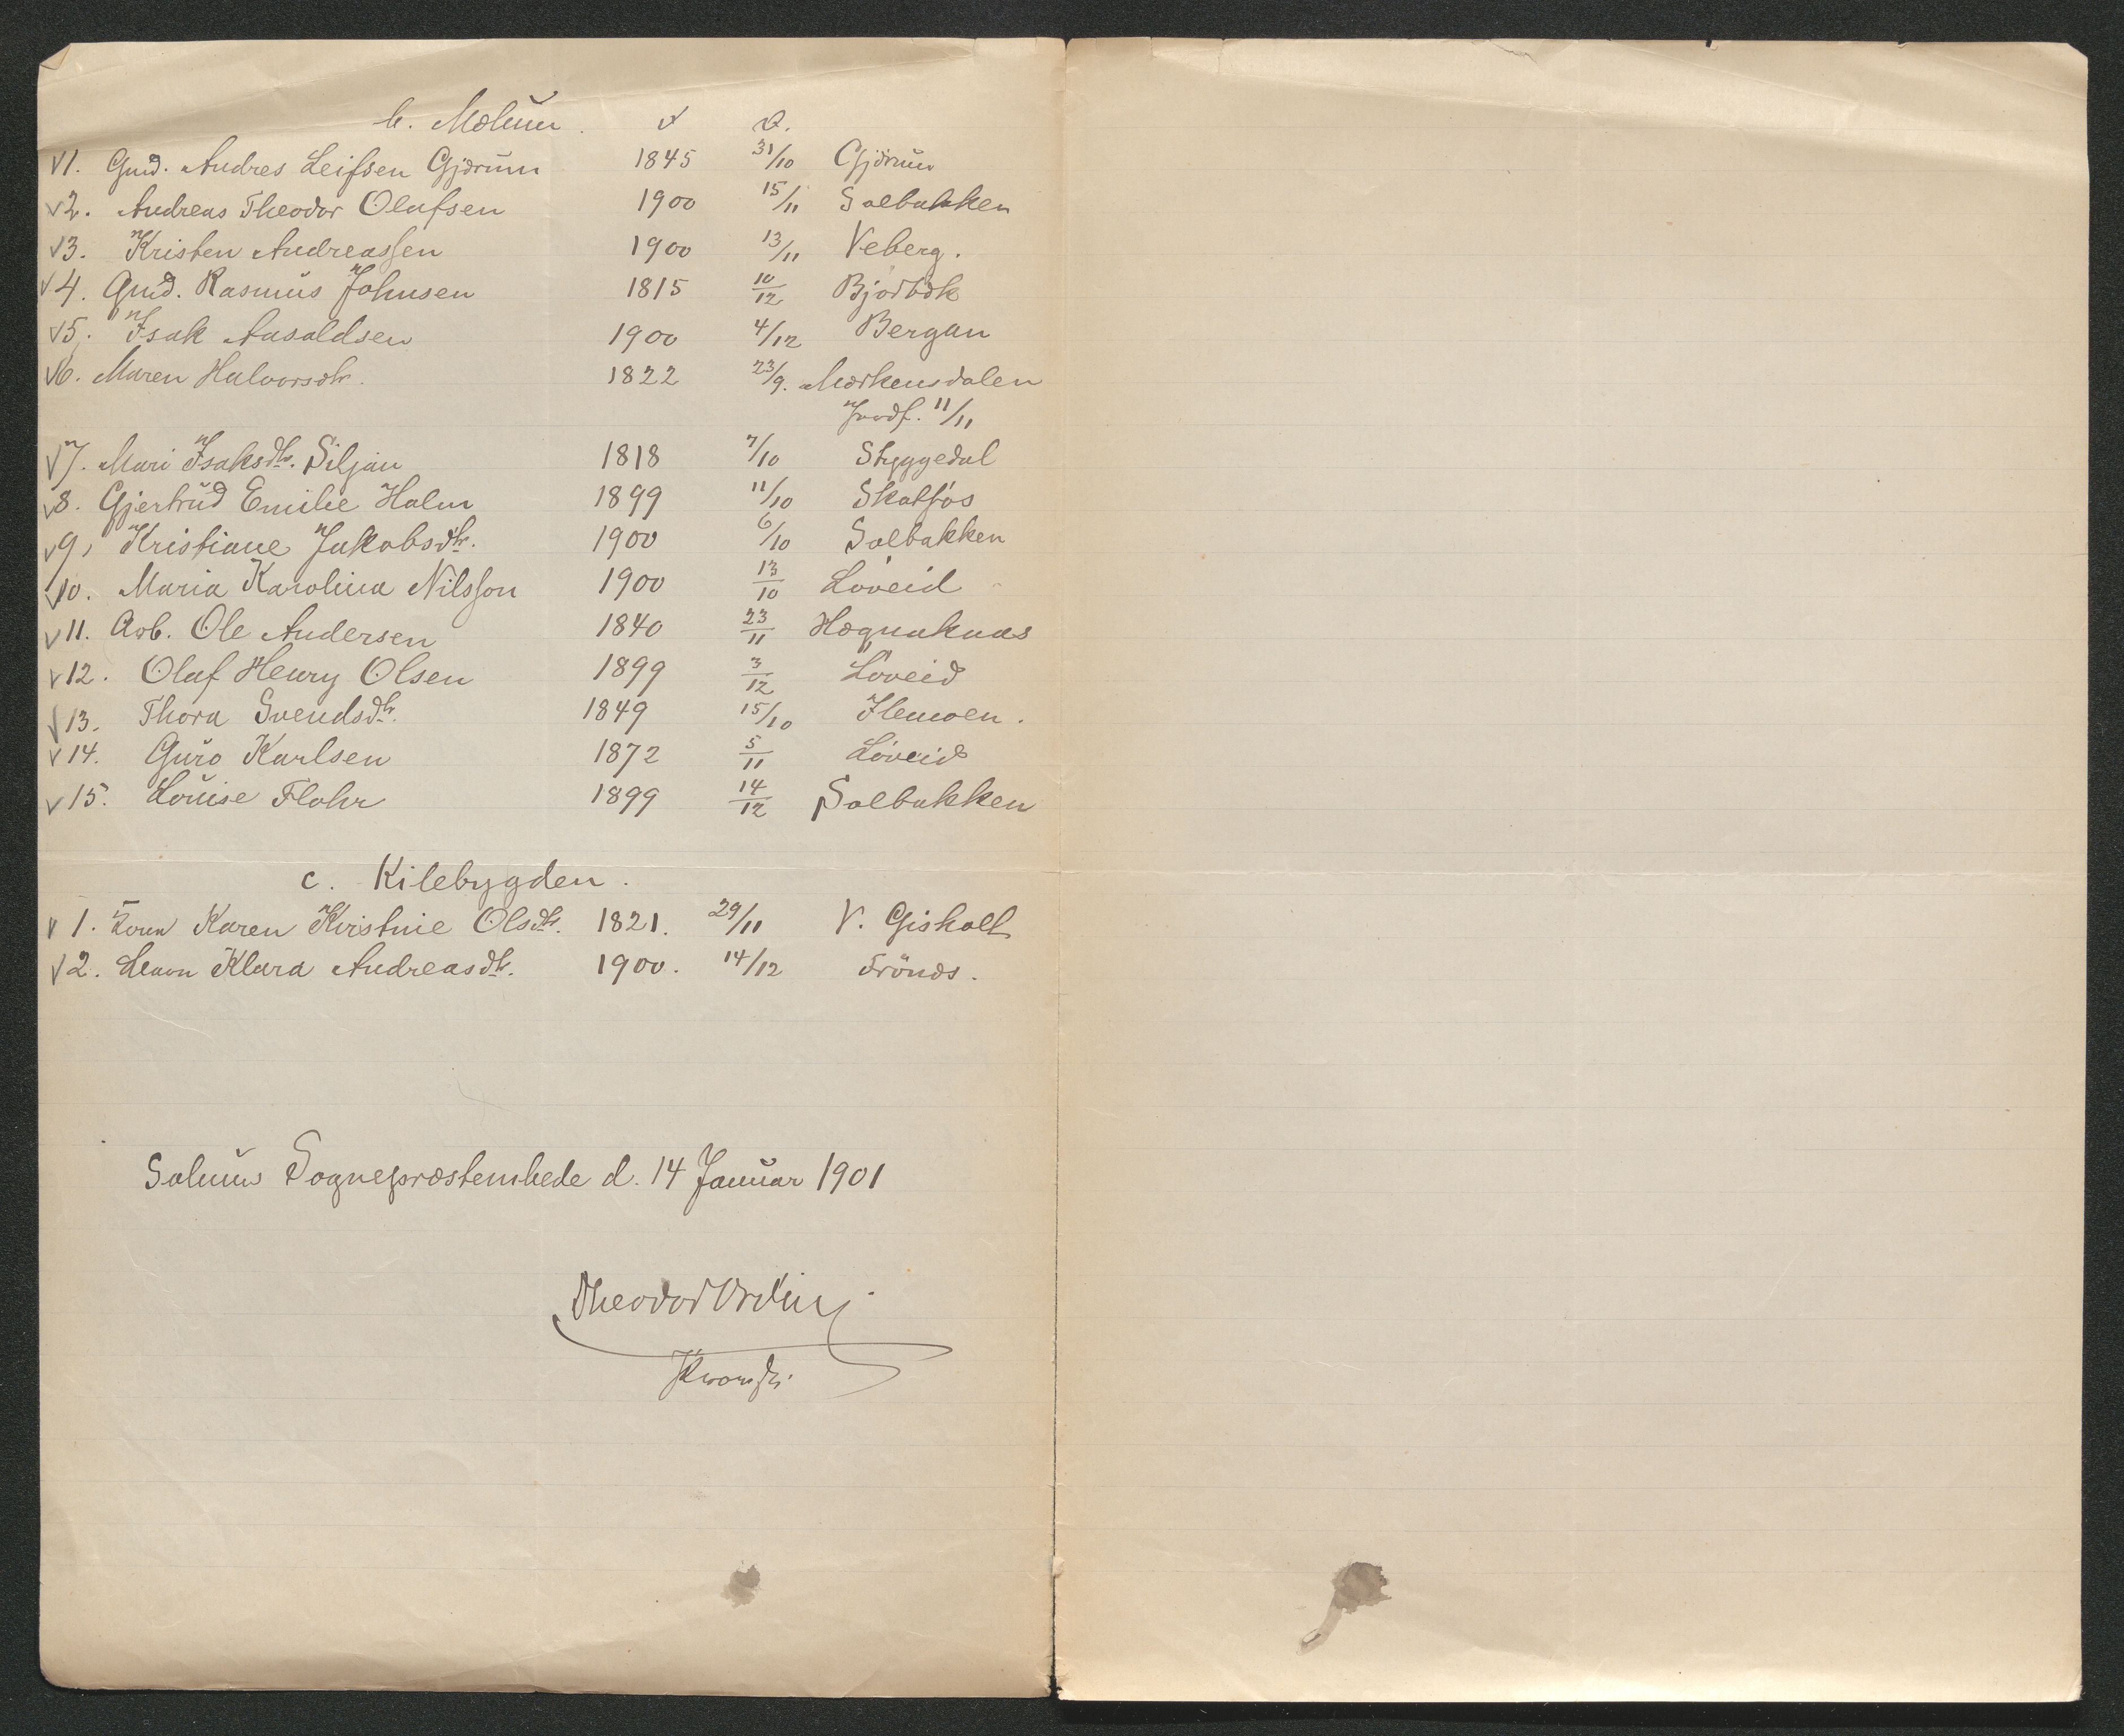 b. Mælum. f. d.
√1. Gmd. Andres Leifsen Gjærum 1845 31/10 Gjærum
√2. Andreas Theodor Olafsen 1900 15/11 Solbakken
√3. Kristen Andreassen 1900 13/11 Veberg.
√4. Gmd. Rasmus Johnsen 1815 10/12 Bjørbæk
√5. Isak Aasoldsen 1900 4/12 Bergan
√6. Maren Halvorsdtr. 1822 23/9. Mærkensdalen
Jordf. 11/11
√7. Mari Isaksdtr. Siljan 1818 7/10 Styggedal
√8. Gjertrud Emilie Halm 1899 11/10 Skotfos
√9, Kristiane Jakobsdtr. 1900 6/10 Solbakken
√10. Maria Karolina Nilsson 1900 13/10 Løveid
√11. Arb. Ole Andersen 1840 23/11 Hægnaknas
√12. Olaf Henry Olsen 1899 3/12 Løveid
√13. Thora Svendsdtr. 1849 15/10 Ilemoen.
√14. Guro Karlsen 1872 5/11 Løveid
√15. Louise Flohr 1899 14/12 Solbakken
c. Kilebygden.
√1. Karen Kristine Olsdtr. 1821. 29/11 V. Gisholt
√2. Klara Andreasdtr. 1900. 14/12 Frönæs.
Solum Sogneprestembede d. 14 Januar 1901
TheodorOrding